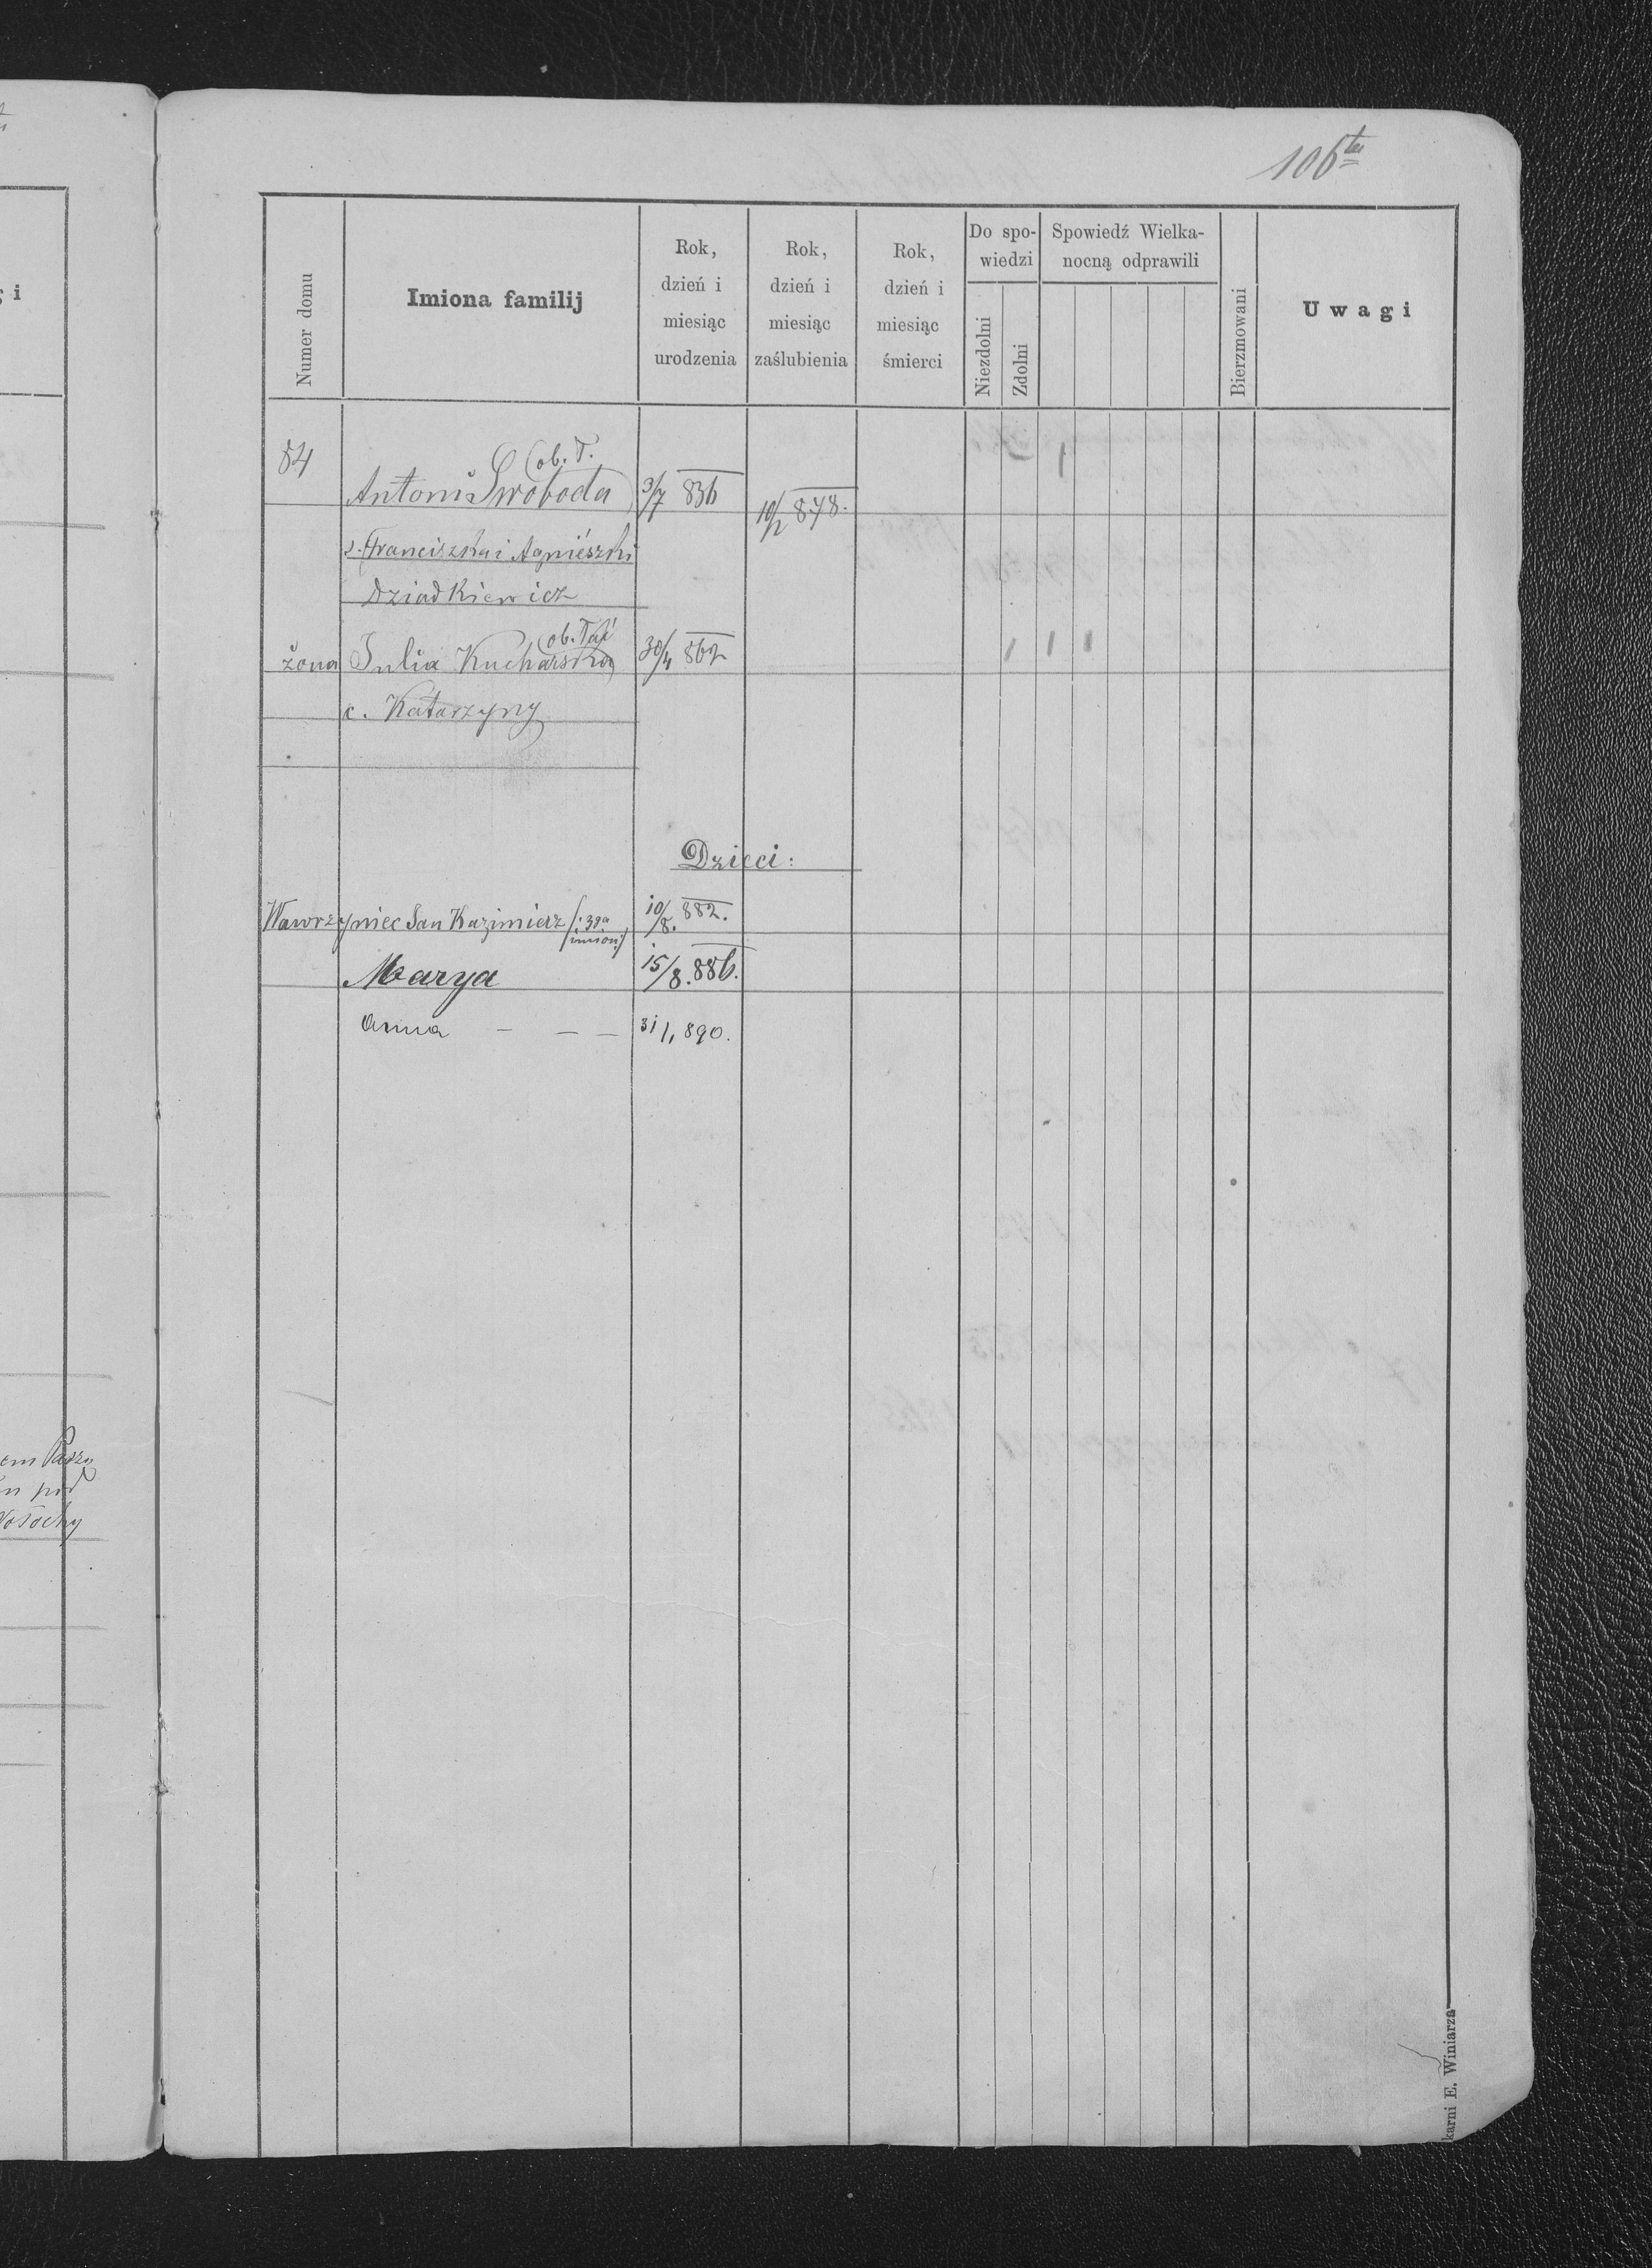 106
Numer domu
Imiona familij
Rok,
dzień i
miesiąc
urodzenia
Rok,
dzień i
miesiąc
zaślubienia
Rok,
dzień i
miesiąc
śmierci
Do spo-
wiedzi
Niezdolni
Zdolni
Spowiedź Wielka-
nocną odprawili
Bierzmowani
Uwagi
84
ob. Ł.
Antoni Swoboda 3/7 836 10/2 878.
s. Franciszka i Agnieszki
Dziadkiewicz
ob. łać
żona Julia Kucharska 30/4 862
c. Katarzyny
Dzieci:
Wawrzyniec Jan Kazimierz /:3ga 10/8. 882.
imion:/
Marya 15/8. 886.
Anna - - - 31/1 890.
gi
pod
karni E. Winiarza